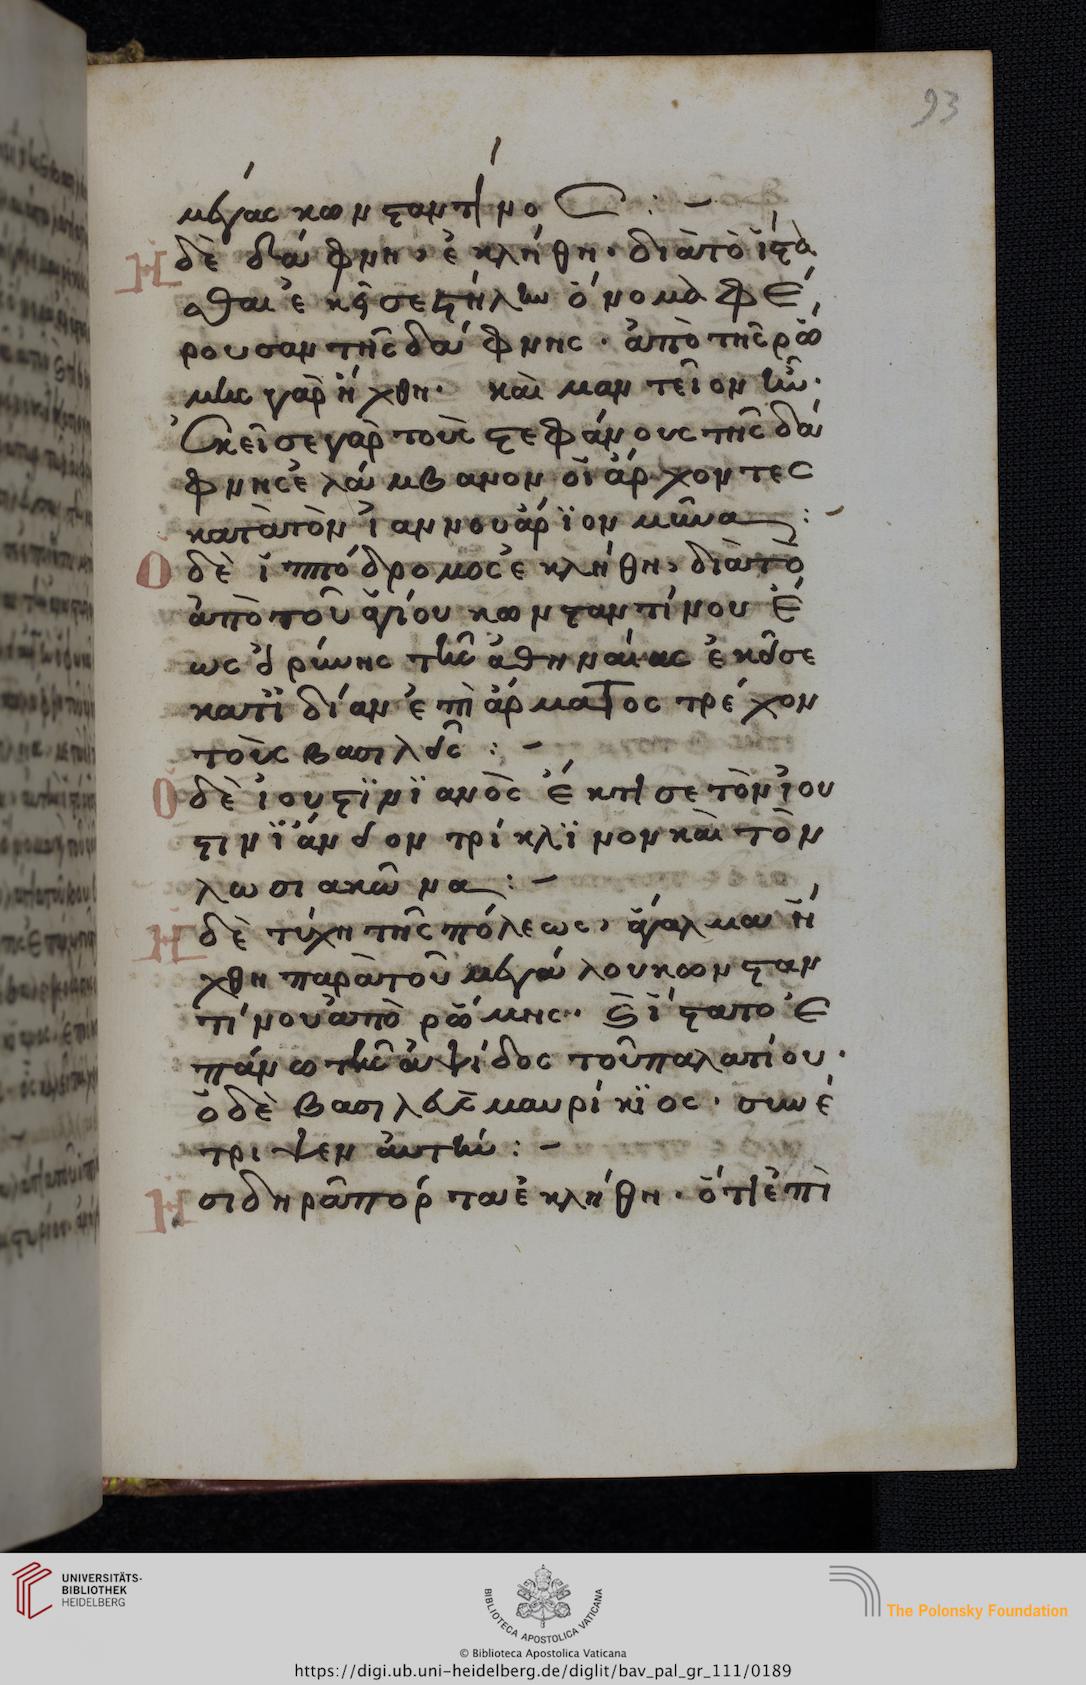 93
μέγας κωνσταντῖνος : –
Ἡ δὲ δάφνη, ἐκλήθη· διὰ τὸ ἵστα
σθαι ἐκεῖσε στήλην ὄνομα φέ
ρουσαν τῆς δάφνης· ἀπὸ τῆς ῥώ
μης γὰρ ἤχθη· καὶ μαντεῖον ἦν·
Ἐκεῖσε γὰρ τοὺς στεφάνους τῆς δά
φνης ἐλάμβανον οἱ ἄρχοντες
κατὰ τὸν ἰαννουάριον μῆνα :
Ὁ δὲ ἱππόδρομος ἐκλήθη, διὰ τὸ
ἀπὸ τοῦ ἁγίου κωνσταντίνου ἕ
ως εἰρήνης τῆς ἀθηναίας ἐκεῖσε
κατϊδίαν ἐπὶ ἅρματος τρέχον
τοὺς βασιλεῖς : –
Ὁ δὲ ἰουστϊνϊανὸς ἔκτισε τὸν ἰου
στινϊάνειον τρίκλϊνον καὶ τὸν
λωσιακῶνα : –
Ἡ δὲ τύχη τῆς πόλεως, ἄγαλμα ἤ
χθη παρὰ τοῦ μεγάλου κωνσταν
τίνου ἀπὸ ῥώμης·· καὶ ἵστατο ἐ
πάνω τῆς ἁψίδος τοῦ παλατίου·
ὁ δὲ βασιλεὺς μαυρίκϊος· συνέ
τριψεν αὐτήν : –
Ἡ σιδηρᾶ πόρτα ἐκλήθη· ὅτι ἐπὶ
UNIVERSITÄTS-
BIBLIOTHEK
HEIDELBERG
BIBLIOTECA APOSTOLICA VATICANA
The Polonsky Foundation
© Biblioteca Apostolica Vaticana
https://digi.ub.uni-heidelberg.de/diglit/bav_pal_gr_111/0189